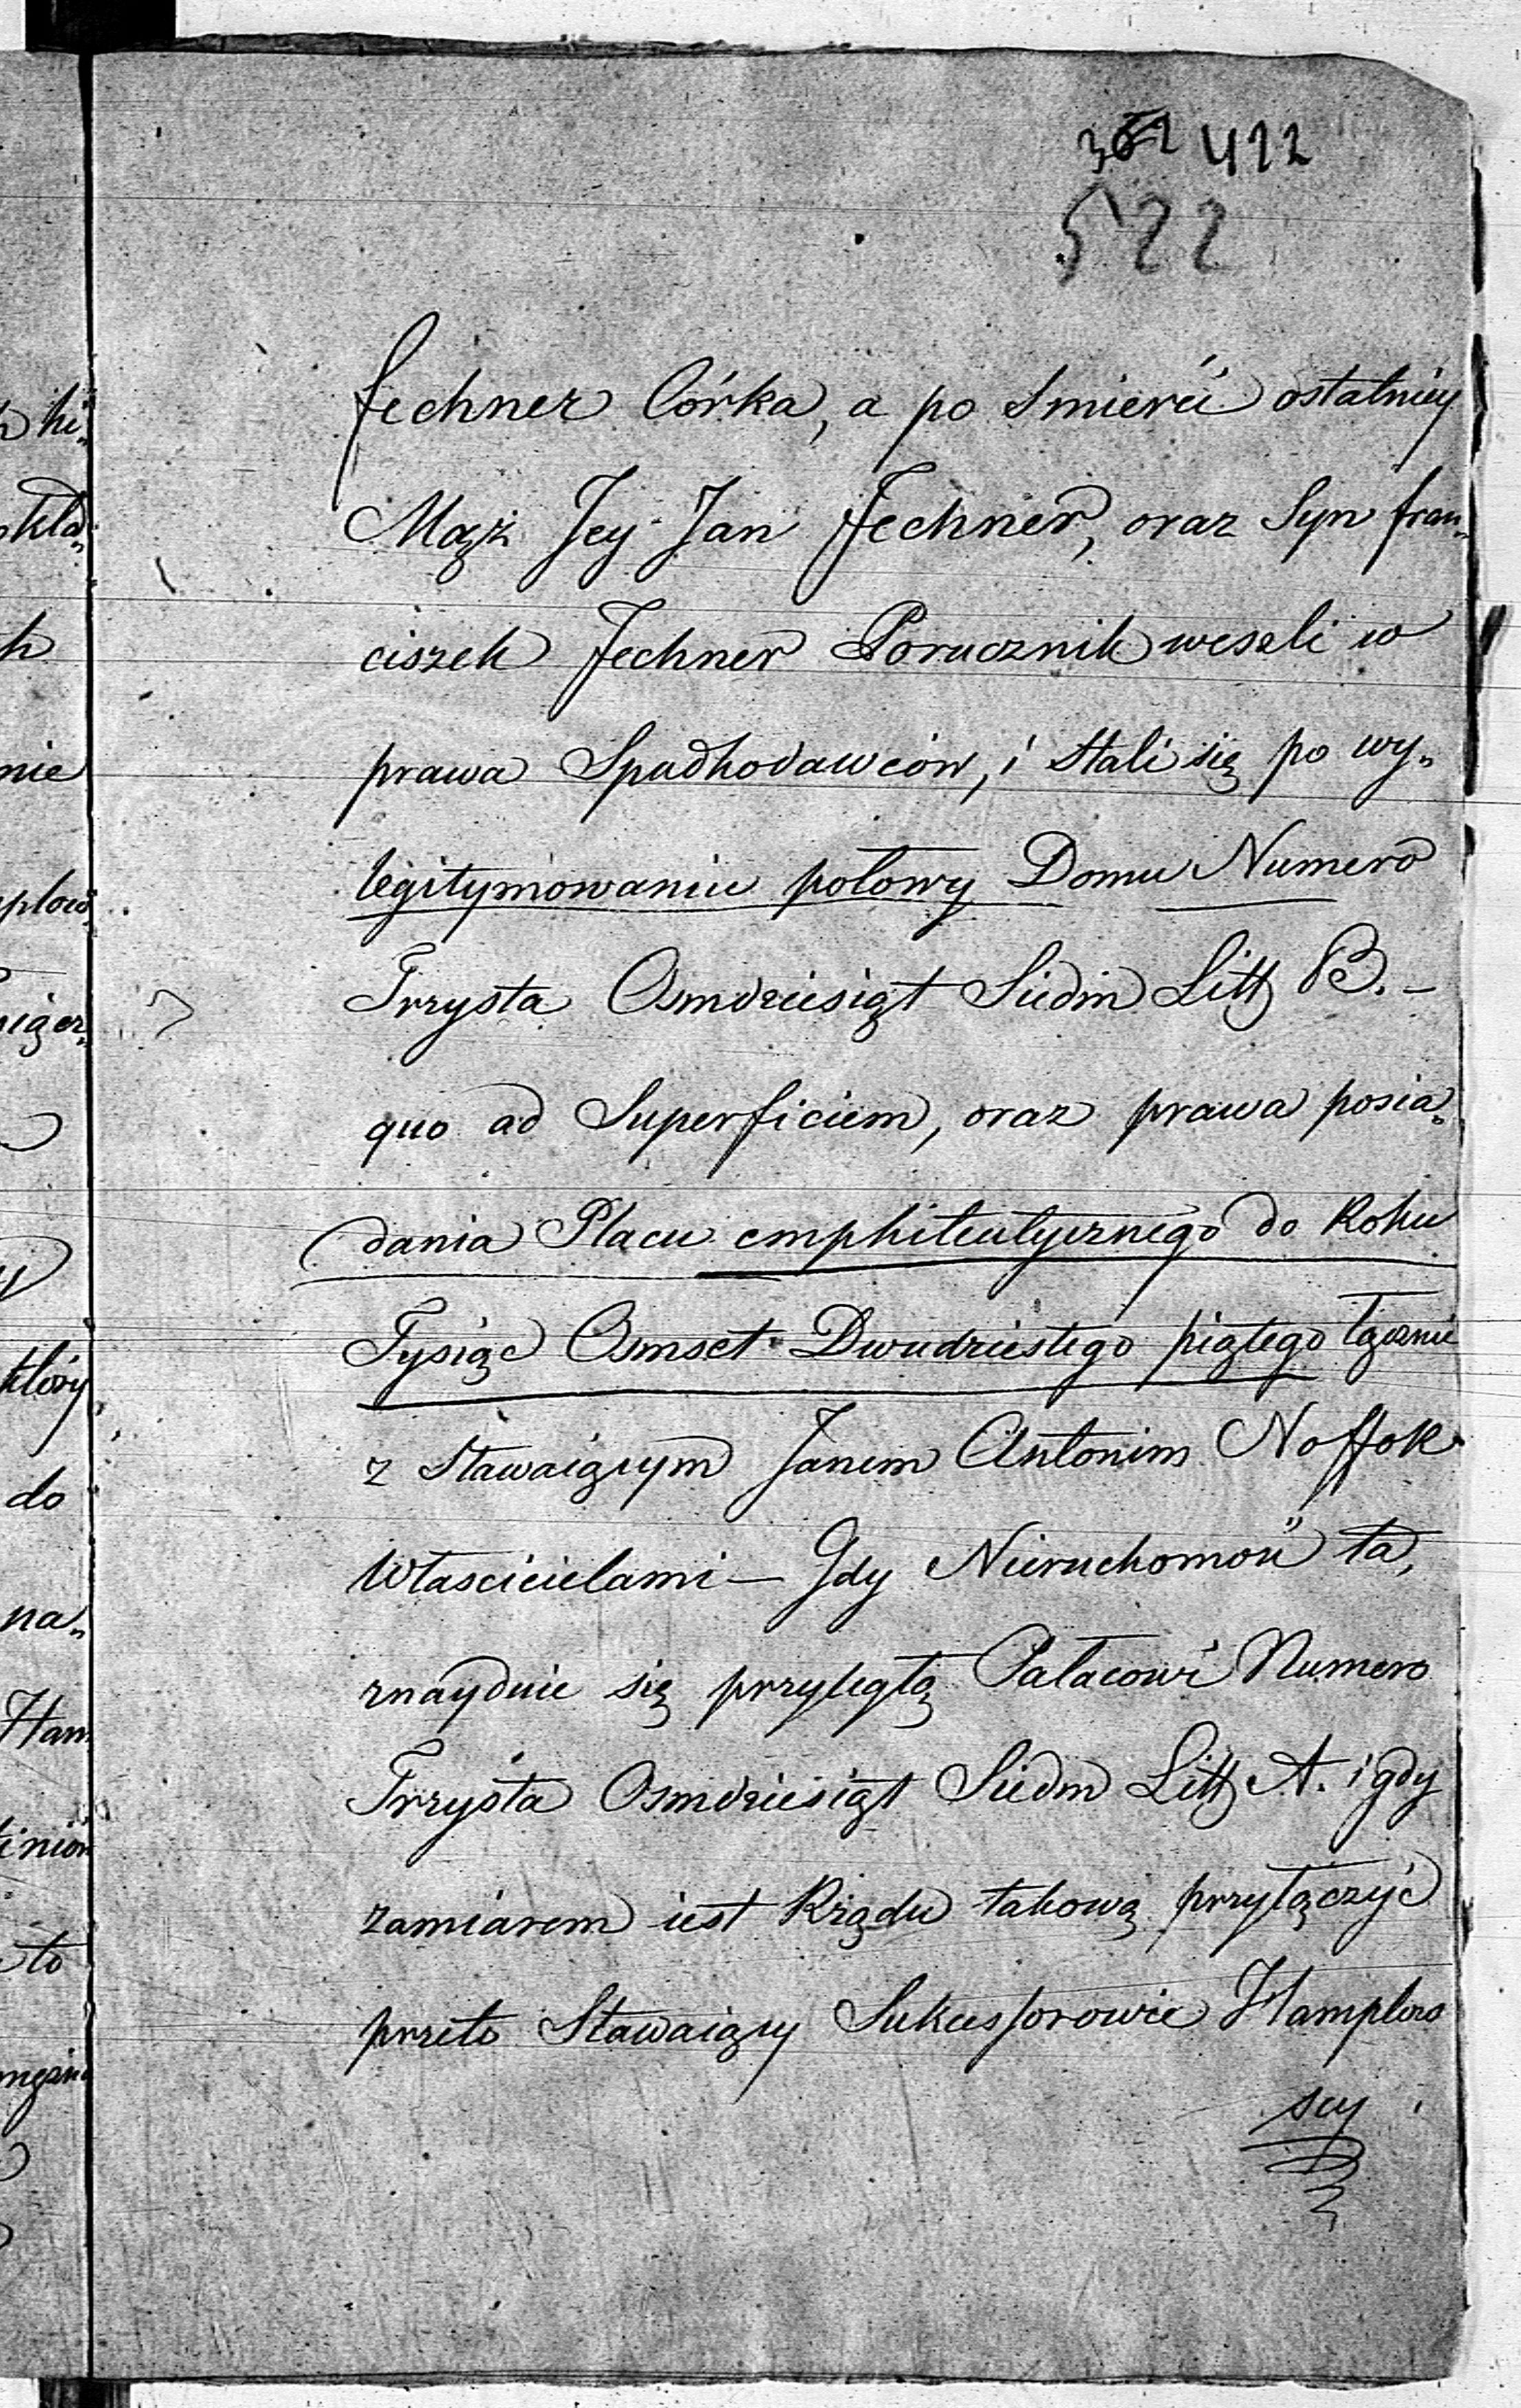 362 422
522
fechner Córka, a po Smierci ostatniey
Mąż Jey Jan Fechner, oraz Syn fran„
ciszek Fechner Porucznik weszli w
prawa Spadkodawców, i Stali się po wy„
legitymowaniu połowy Domu Numero
Trzysta Osmdziesiąt Siedm Litt B. –
quo ad Superficiem, oraz prawa posia„
dania Placu emphiteutycznego do Roku
Tysiąc Osmset Dwudziestego piątego łącznie
z Stawaiącym Janem Antonim Noffok
Włascicielami – Gdy Nieruchomość ta,
znayduie się przyległą Pałacowi Numero
Trzysta Osmdziesiąt Siedm Litt A. i gdy
zamiarem iest Rządu takową przyłączyć
przeto Stawaiący Sukcessorowie Hamplow
scy